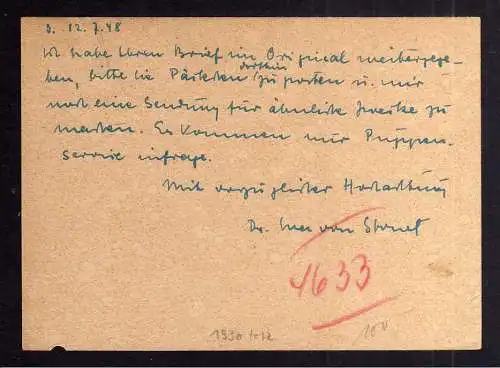 D. 12.7.48
Ich habe Ihren Brief im Original weitergege-
ben, bitte die Päckchen dorthin zu posten u. mir
noch eine Sendung für ähnliche Zwecke zu
machen. Es kommen nur Puppen-
service infrage.
Mit vorzüglicher Hochachtung
Dr. von
4633
1930